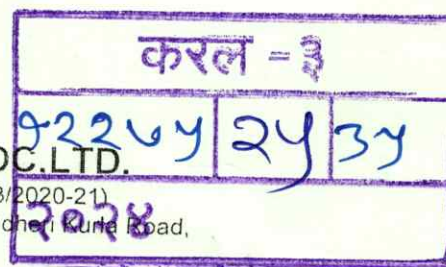 करल - ३
१२२७५ २५ ३५
OC.LTD.
3/2020-21)
२०२४
dheri Kurla Road,